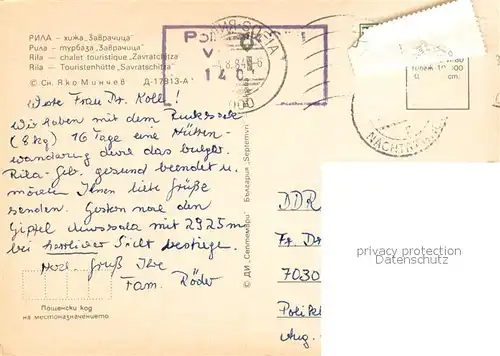 РИЛА – хижа „Заврачица"
Рила – турбаза „Заврачица"
Rila — chalet touristique „Zavratchitza"
Rila — Touristenhütte „Savratschitza"
© Сн. Яко Минчев Д-17913-А
Liebe Frau Dr. Koll !
Wir haben mit dem Rucksack
(8kg) 16 Tage eine Hütten-
wanderung durch das bulgar.
Rila-Geb. gesund beendet u.
möchten Ihnen liebe Grüße
senden. Gestern noch den
Gipfel Mussala mit 2925m
bei herrlicher Sicht bestiegen.
Herzl. Gruß Ihre
Fam. Röder
Пощенски код
на местоназначението
© ДИ „Септември" · България „Septemvri"
SOFIA
8.8
DDR
Fr. Dr
7030
Poliki
Aug.
privacy protection
Datenschutz